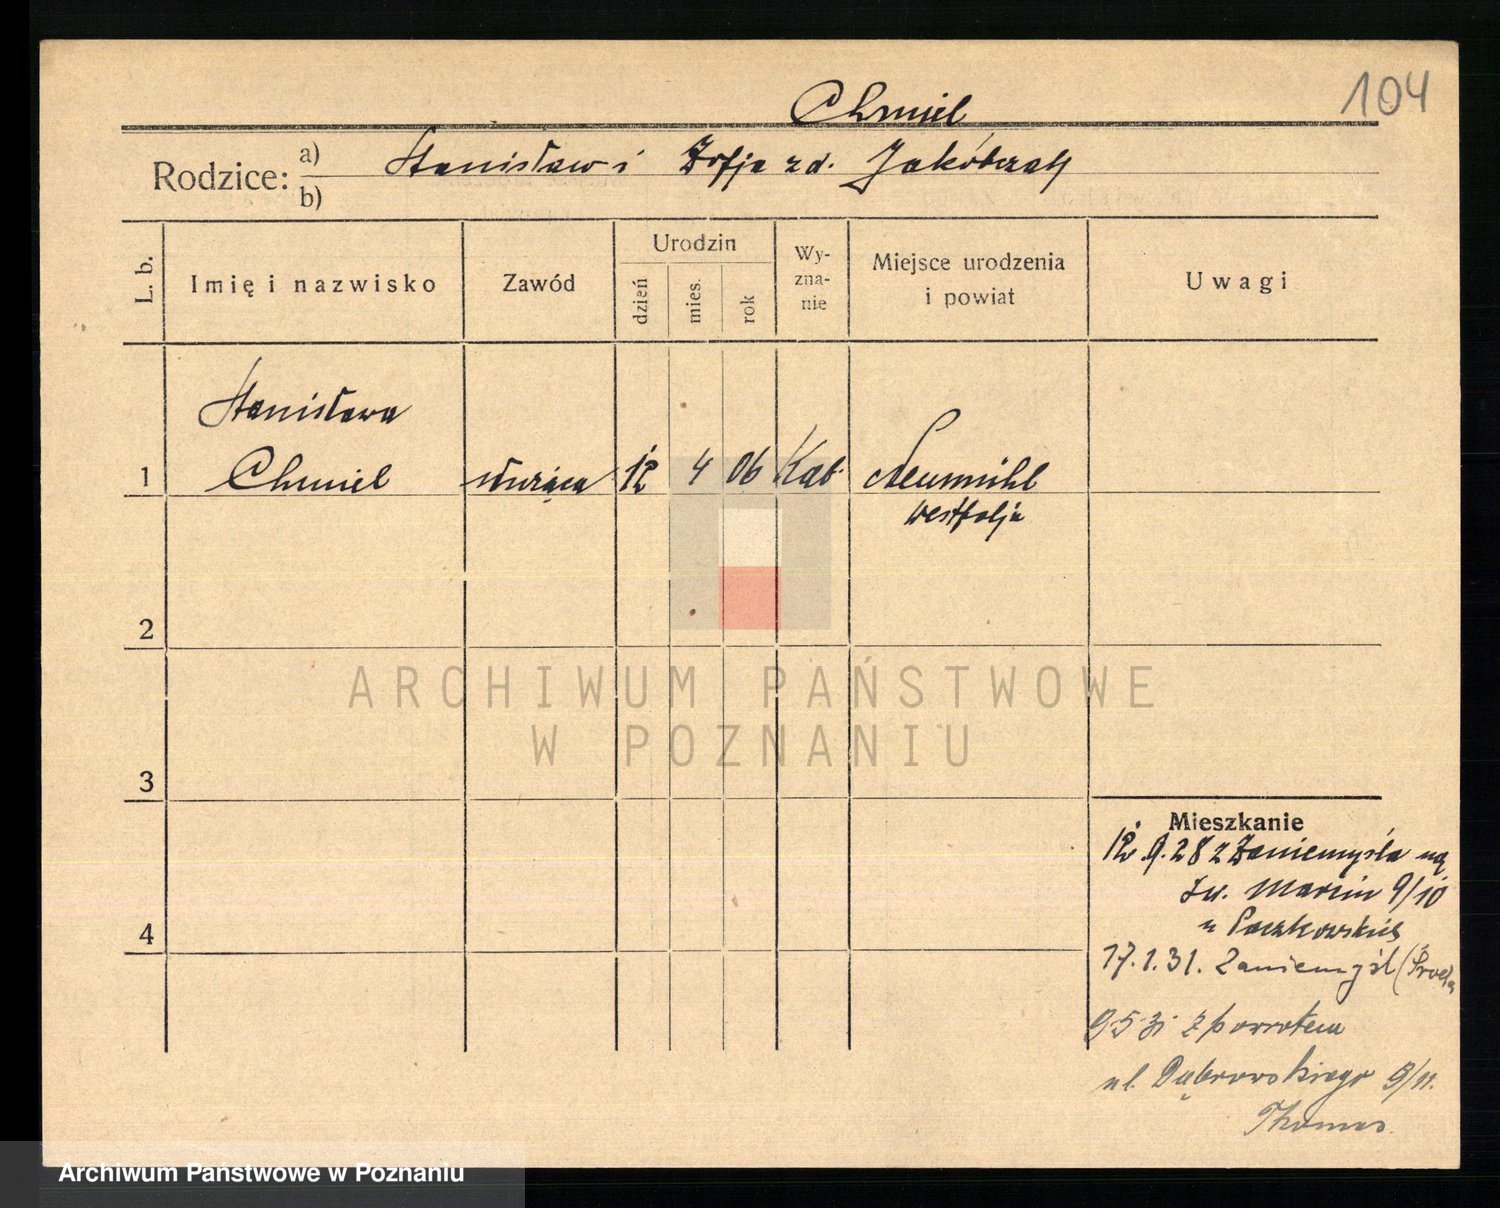 104
Chmiel
Rodzice: a) Stanisław i Zofja zd. Jakóbczak
b)
L. b. Imię i nazwisko Zawód Urodzin dzień mies. rok Wy-zna-nie Miejsce urodzenia i powiat Uwagi
Stanisława
1 Chmiel służąca 12 4 06 Kat. Neumühl
Westfalja
2
3
4
Mieszkanie
12.9.28 z Zaniemyśla na
św. Marcin 9/10
u Paczkowskich
17.1.31. Zaniemyśl (Środa
9.5.31 z powrotem
ul. Dąbrowskiego 9/11.
Thomas.
ARCHIWUM PAŃSTWOWE
W POZNANIU
Archiwum Państwowe w Poznaniu